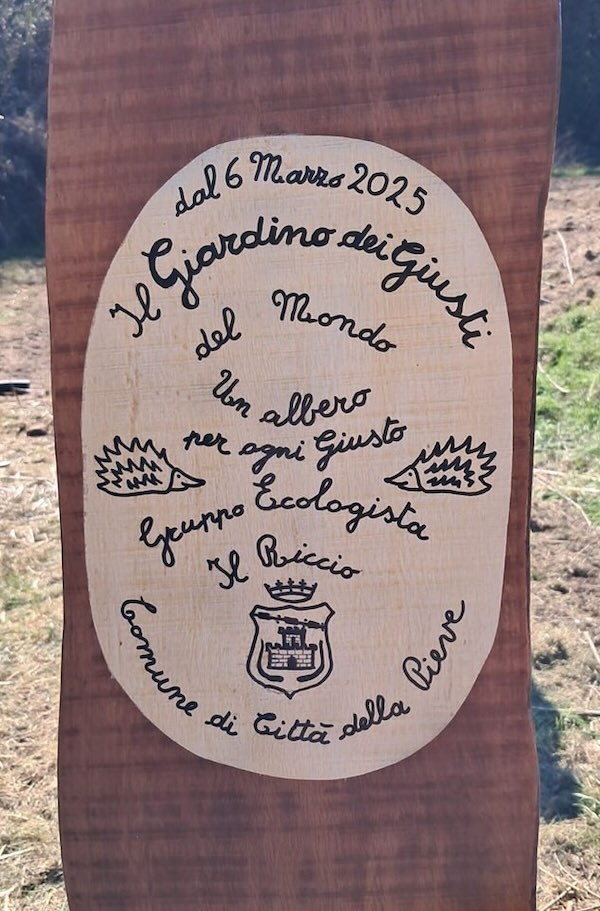 dal 6 Marzo 2025
Il Giardino dei Giusti
del Mondo
Un albero
per ogni Giusto
Gruppo Ecologista
Il Riccio
Comune di Città della Pieve